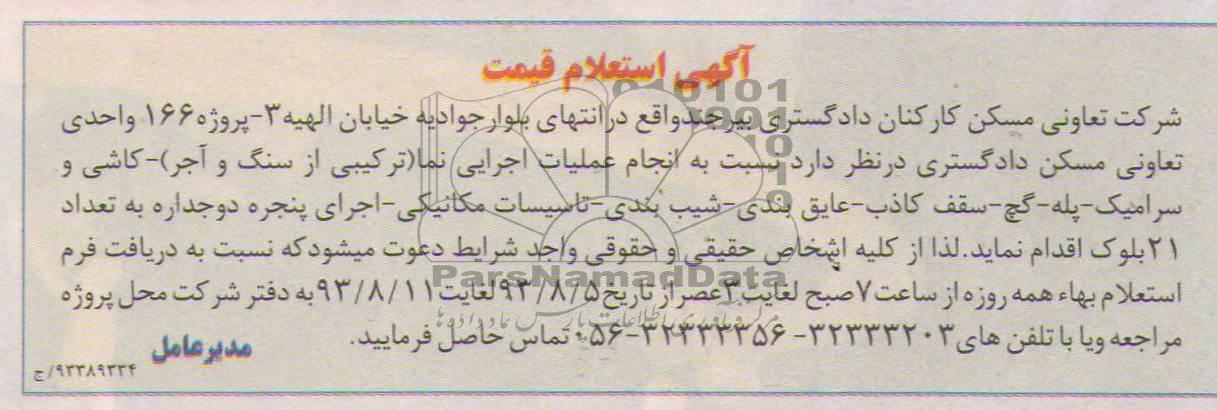 آگهی استعلام قیمت
شرکت تعاونی مسکن کارکنان دادگستری بیرجندواقع درانتهای بلوارجوادیه خیابان الهیه۳-پروژه۱۶۶ واحدی
تعاونی مسکن دادگستری درنظر دارد نسبت به انجام عملیات اجرایی نما(ترکیبی از سنگ و آجر)-کاشی و
سرامیک-پله-گچ-سقف کاذب-عایق بندی-شیب بندی-تاسیسات مکانیکی-اجرای پنجره دوجداره به تعداد
۲۱بلوک اقدام نماید.لذا از کلیه اشخاص حقیقی و حقوقی واجد شرایط دعوت میشودکه نسبت به دریافت فرم
ParsNamadData
استعلام بهاء همه روزه از ساعت۷صبح لغایت۳عصراز تاریخ۹۳/۸/۵لغایت۹۳/۸/۱۱به دفتر شرکت محل پروژه
مراجعه ویا با تلفن های۳۲۳۳۳۲۰۳- ۳۲۳۳۳۳۵۶-۰۵۶ تماس حاصل فرمایید.
مدیرعامل
۹۳۳۸۹۳۳۴/ج